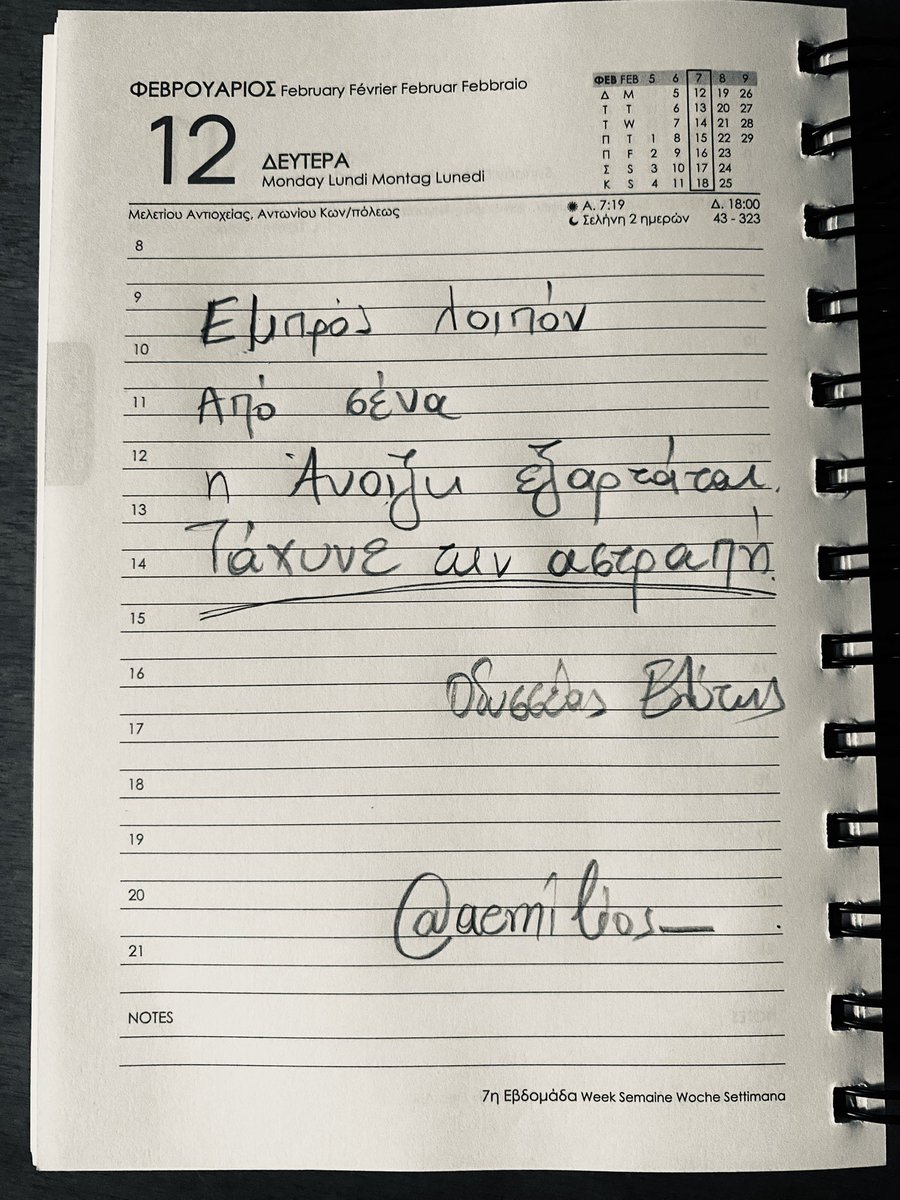 ΦΕΒΡΟΥΑΡΙΟΣ February Février Februar Febbraio
12
ΔΕΥΤΕΡΑ
Monday Lundi Montag Lunedi
ΦΕΒ FEB 5 6 7 8 9
Δ M 5 12 19 26
Τ T 6 13 20 27
Τ W 7 14 21 28
Π T 1 8 15 22 29
Π F 2 9 16 23
Σ S 3 10 17 24
Κ S 4 11 18 25
Μελετίου Αντιοχείας, Αντωνίου Κων/πόλεως
Α. 7:19 Δ. 18:00
Σελήνη 2 ημερών 43 - 323
8
9
Εμπρός λοιπόν
10
11
Από σένα
12
η Άνοιξη εξαρτάται.
13
Τάχυνε την αστραπή.
14
15
16
Οδυσσέας Ελύτης
17
18
19
20
@aemilios_
21
NOTES
7η Εβδομάδα Week Semaine Woche Settimana